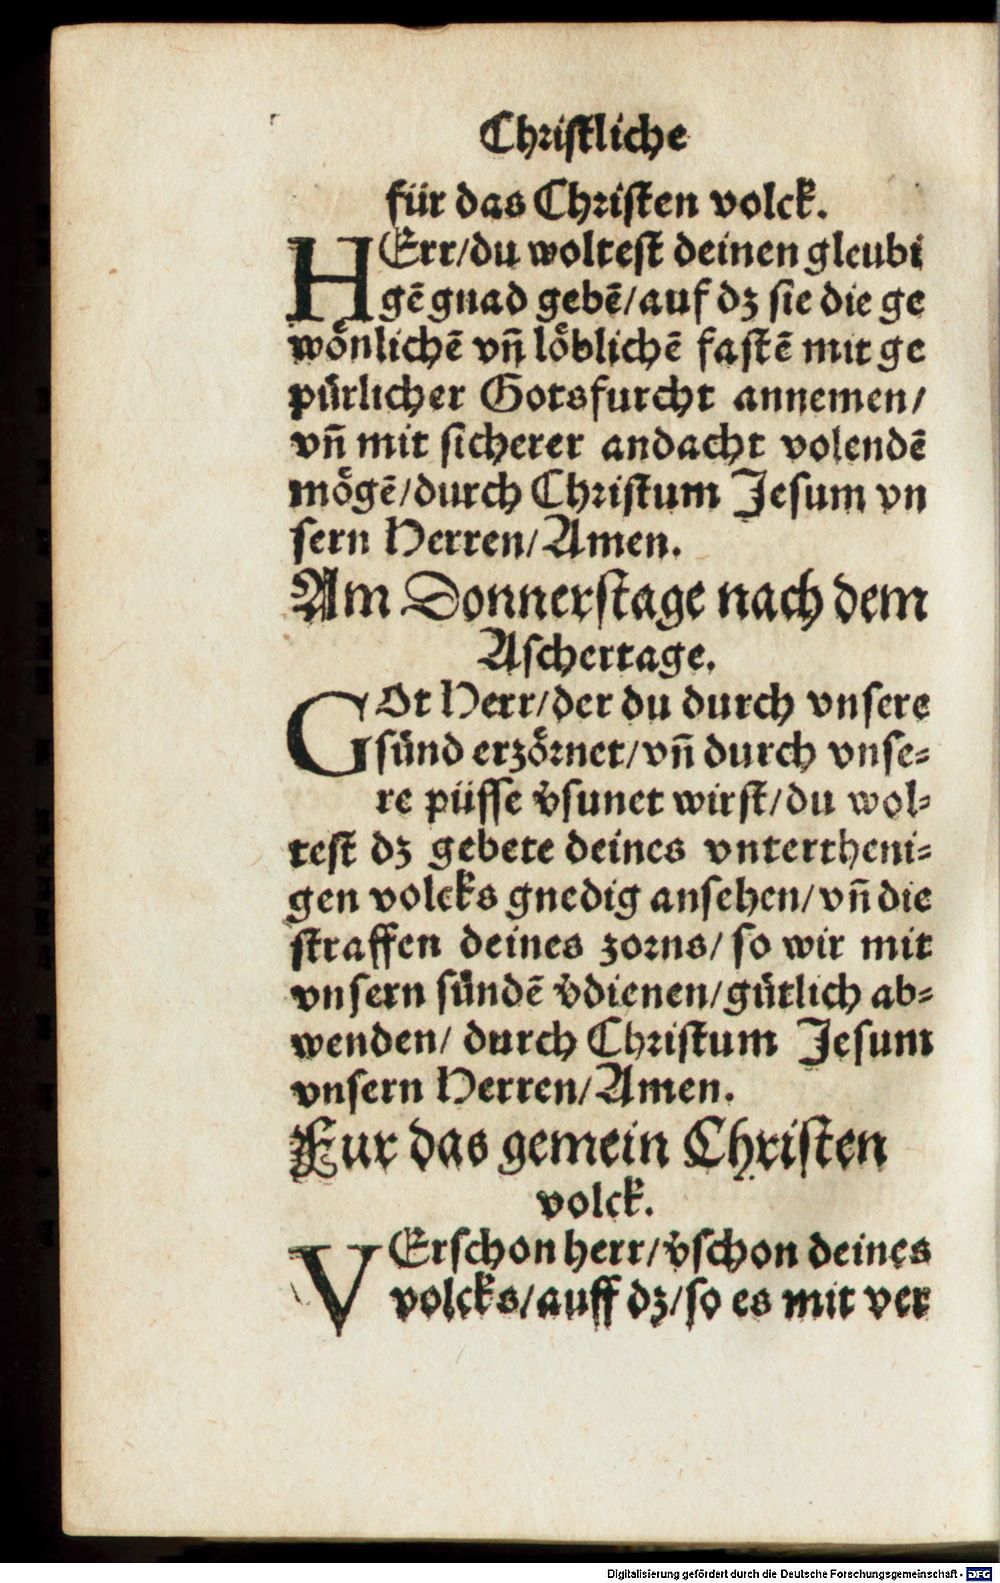 Christliche
für das Christen volck.
HErr/du woltest deinen gleubi
gē gnad gebē/auf dz sie die ge
wönlichē vn̄ löblichē fastē mit ge
pürlicher Gotsfurcht annemen/
vn̄ mit sicherer andacht volendē
mögē/durch Christum Jesum vn
sern Herren/Amen.
Am Donnerstage nach dem
Aschertage.
GOt Herr/der du durch vnsere
sünd erzörnet/vn̄ durch vnse=
re püsse v̄sunet wirst/du wol=
test dz gebete deines vntertheni=
gen volcks gnedig ansehen/vn̄ die
straffen deines zorns/so wir mit
vnsern sündē v̄dienen/gütlich ab=
wenden/durch Christum Jesum
vnsern Herren/Amen.
Fur das gemein Christen
volck.
VErschon herr/v̄schon deines
volcks/auff dz/so es mit ver
Digitalisierung gefördert durch die Deutsche Forschungsgemeinschaft - DFG